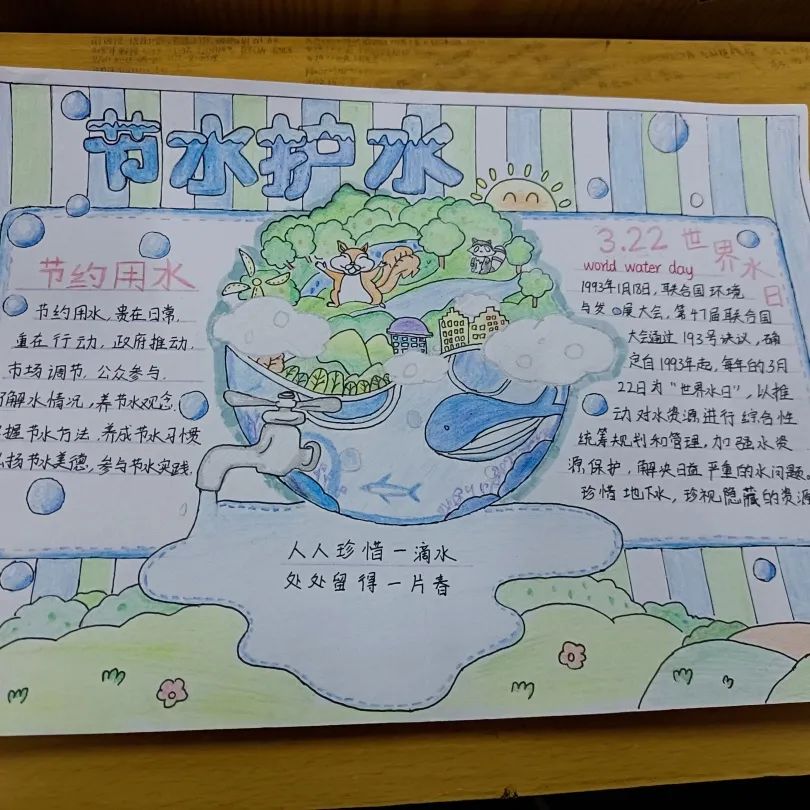 节水护水
节约用水
节约用水，贵在日常，
重在行动，政府推动，
市场调节，公众参与，
了解水情况，养节水观念，
掌握节水方法，养成节水习惯
弘扬节水美德，参与节水实践。
3.22世界水日
world water day
1993年1月18日，联合国环境
与发展大会，第47届联合国
大会通过193号决议，确
定自1993年起，每年的3月
22日为"世界水日"，以推
动对水资源进行综合性
统筹规划和管理，加强水资
源保护，解决日益严重的水问题。
珍惜地下水，珍视隐藏的资源
人人珍惜一滴水
处处留得一片春